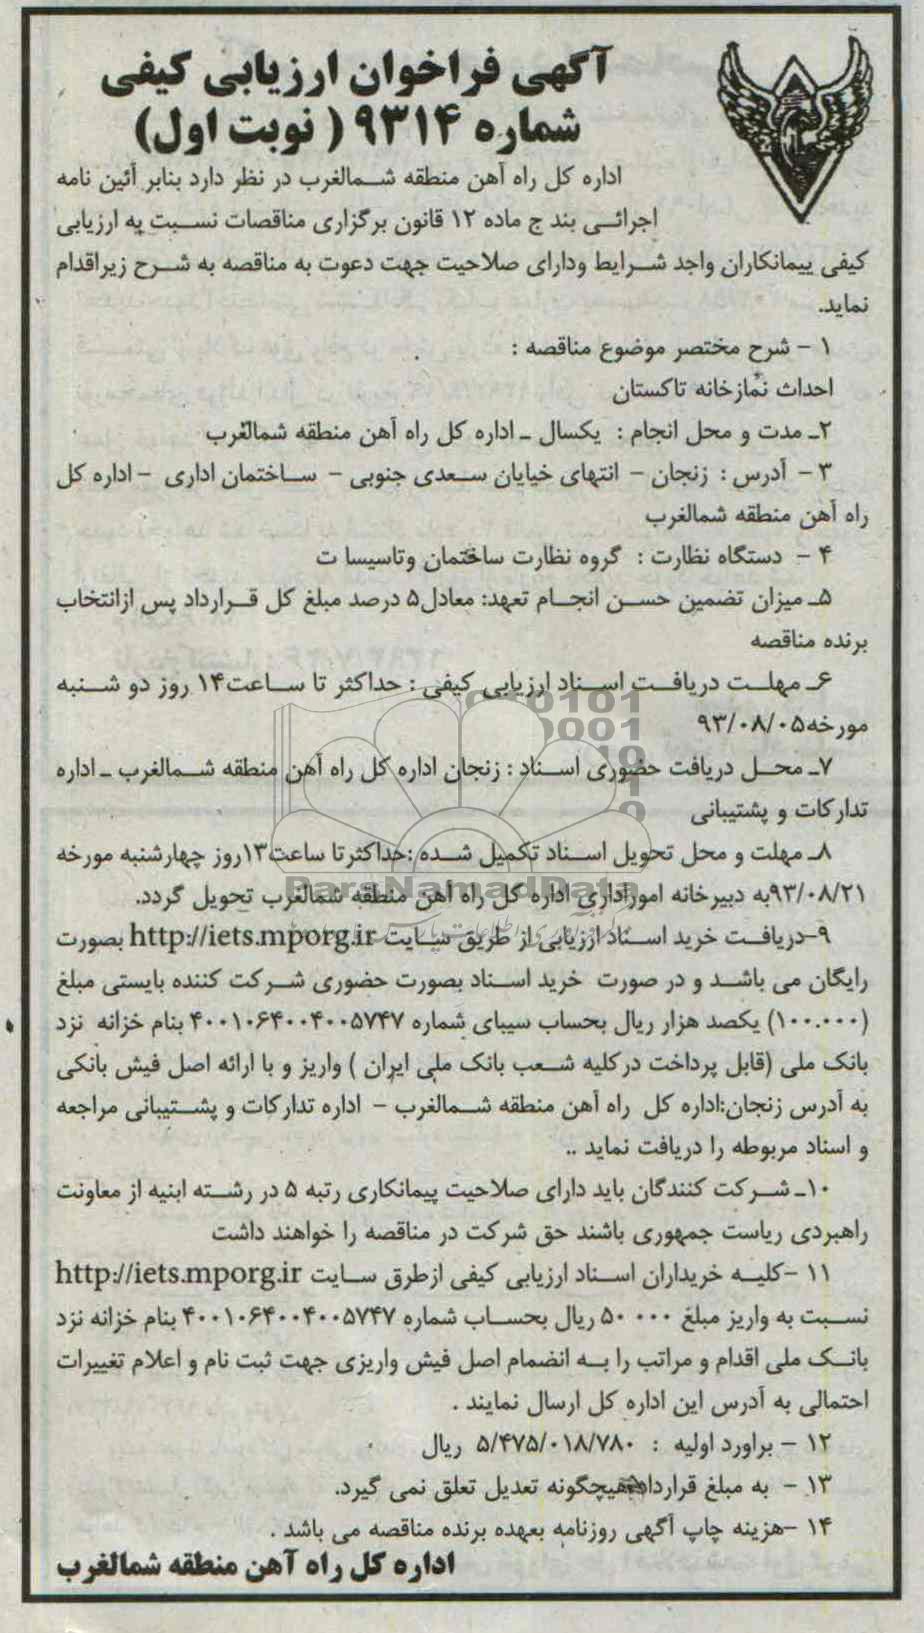 آگهی فراخوان ارزیابی کیفی
شماره ۹۳۱۴ ( نوبت اول)
اداره کل راه آهن منطقه شمالغرب در نظر دارد بنابر آئین نامه
اجرائی بند ج ماده ۱۲ قانون برگزاری مناقصات نسبت به ارزیابی
کیفی پیمانکاران واجد شرایط ودارای صلاحیت جهت دعوت به مناقصه به شرح زیراقدام
نماید.
۱ - شرح مختصر موضوع مناقصه :
احداث نمازخانه تاکستان
۲ـ مدت و محل انجام : یکسال ـ اداره کل راه آهن منطقه شمالغرب
۳ - آدرس : زنجان - انتهای خیابان سعدی جنوبی - ساختمان اداری - اداره کل
راه آهن منطقه شمالغرب
۴ - دستگاه نظارت : گروه نظارت ساختمان وتاسیسا ت
۵ـ میزان تضمین حسن انجام تعهد: معادل۵ درصد مبلغ کل قرارداد پس ازانتخاب
برنده مناقصه
۶ـ مهلت دریافت اسناد ارزیابی کیفی : حداکثر تا ساعت۱۴ روز دو شنبه
مورخه۹۳/۰۸/۰۵
۷ـ محل دریافت حضوری اسناد : زنجان اداره کل راه آهن منطقه شمالغرب ـ اداره
تدارکات و پشتیبانی
۸ـ مهلت و محل تحویل اسناد تکمیل شده :حداکثرتا ساعت۱۳روز چهارشنبه مورخه
۹۳/۰۸/۲۱به دبیرخانه اموراداری اداره کل راه آهن منطقه شمالغرب تحویل گردد.
ParsNamadData
۹-دریافت خرید اسناد ارزیابی از طریق سایت http://iets.mporg.ir بصورت
رایگان می باشد و در صورت خرید اسناد بصورت حضوری شرکت کننده بایستی مبلغ
(۱۰۰.۰۰۰) یکصد هزار ریال بحساب سیبای شماره ۴۰۰۱۰۶۴۰۰۴۰۰۵۷۴۷ بنام خزانه نزد
بانک ملی (قابل پرداخت درکلیه شعب بانک ملی ایران ) واریز و با ارائه اصل فیش بانکی
به آدرس زنجان:اداره کل راه آهن منطقه شمالغرب - اداره تدارکات و پشتیبانی مراجعه
و اسناد مربوطه را دریافت نماید ..
۱۰ـ شرکت کنندگان باید دارای صلاحیت پیمانکاری رتبه ۵ در رشته ابنیه از معاونت
راهبردی ریاست جمهوری باشند حق شرکت در مناقصه را خواهند داشت
۱۱ -کلیه خریداران اسناد ارزیابی کیفی ازطرق سایت http://iets.mporg.ir
نسبت به واریز مبلغ ۰۰۰ ۵۰ ریال بحساب شماره ۴۰۰۱۰۶۴۰۰۴۰۰۵۷۴۷ بنام خزانه نزد
بانک ملی اقدام و مراتب را به انضمام اصل فیش واریزی جهت ثبت نام و اعلام تغییرات
احتمالی به آدرس این اداره کل ارسال نمایند .
۱۲ - براورد اولیه : ۵/۴۷۵/۰۱۸/۷۸۰ ریال
۱۳ - به مبلغ قرارداد هیچگونه تعدیل تعلق نمی گیرد.
۱۴ -هزینه چاپ آگهی روزنامه بعهده برنده مناقصه می باشد .
اداره کل راه آهن منطقه شمالغرب